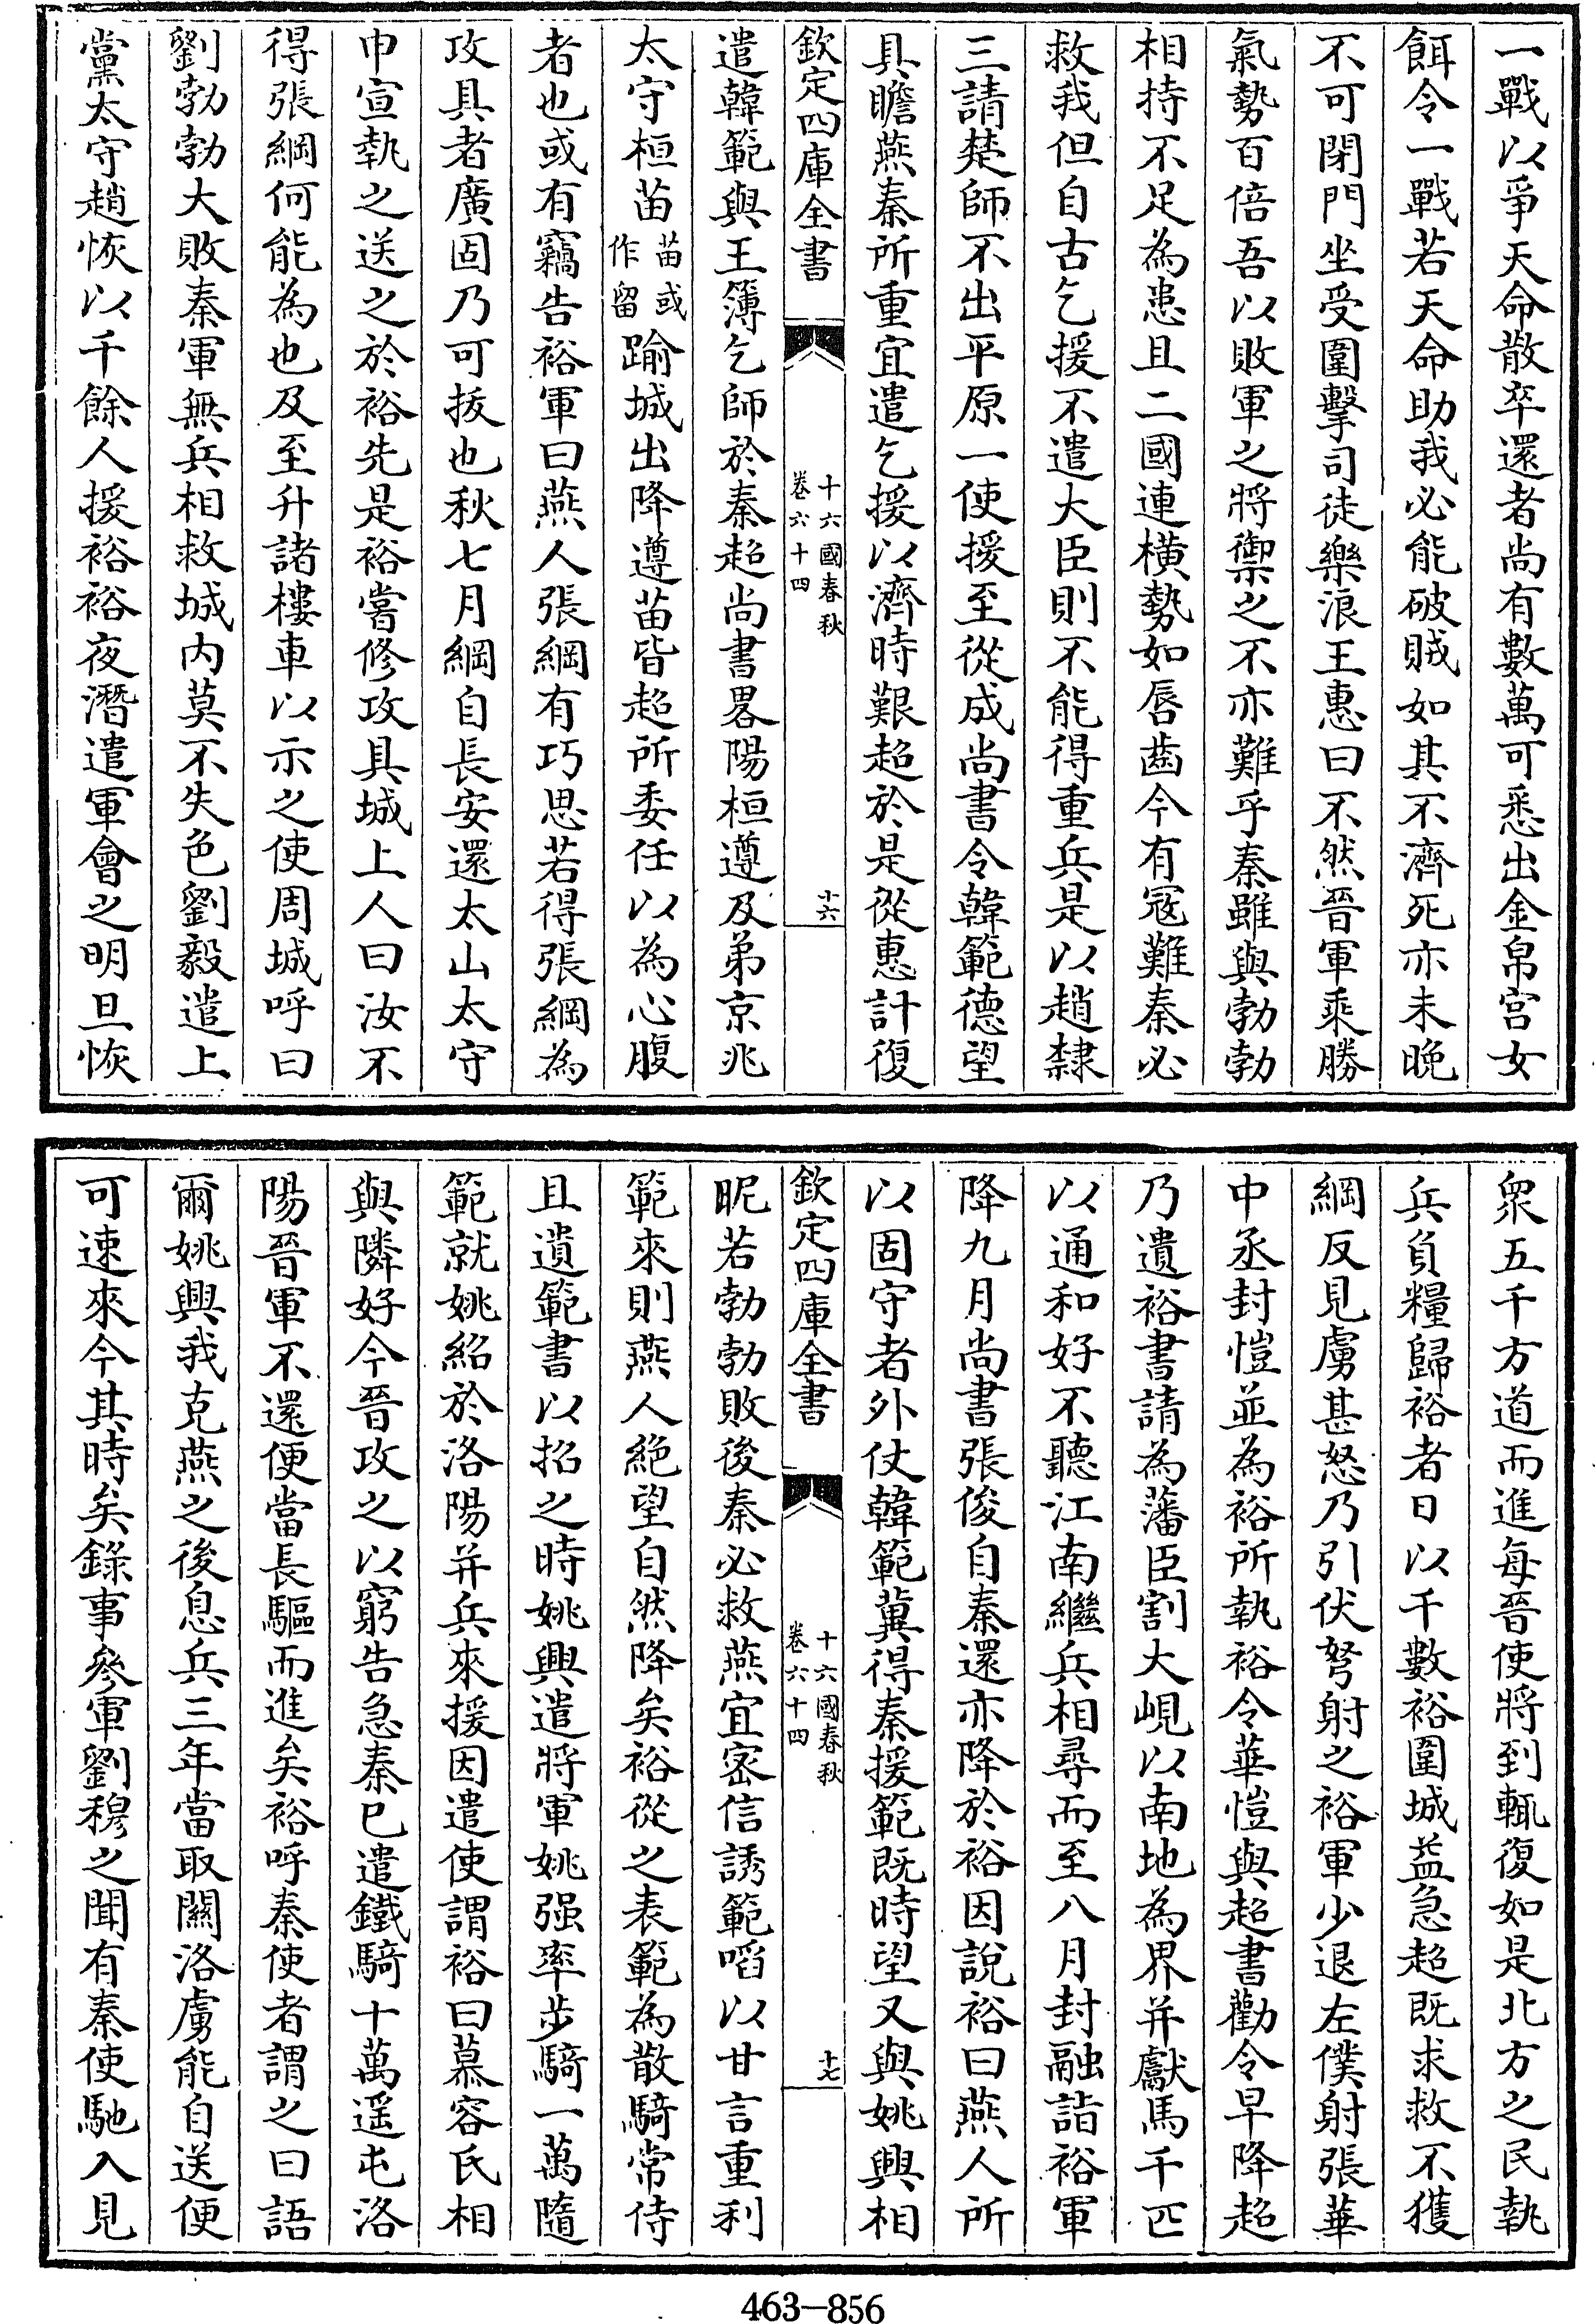 一戰以爭天命散卒還者尚有數萬可悉出金帛宫女
餌令一戰若天命助我必能破賊如其不濟死亦未晚
不可閉門坐受圍擊司徒樂浪王惠曰不然晉軍乘勝
氣勢百倍吾以敗軍之將禦之不亦難乎秦雖與勃勃
相持不足為患且二國連横勢如唇齒今有寇難秦必
救我但自古乞援不遣大臣則不能得重兵是以趙隸
三請楚師不出平原一使援至從成尚書令韓範德望
具瞻燕秦所重宜遣乞援以濟時艱超於是從惠計復
欽定四庫全書
十六國春秋
卷六十四
十六
遣韓範與王簿乞師於秦超尚書畧陽桓遵及弟京兆
太守桓苗苗或作留踰城出降遵苗皆超所委任以為心腹
者也或有竊告裕軍曰燕人張綱有巧思若得張綱為
攻具者廣固乃可拔也秋七月綱自長安還太山太守
申宣執之送之於裕先是裕嘗修攻具城上人曰汝不
得張綱何能為也及至升諸樓車以示之使周城呼曰
劉勃勃大敗秦軍無兵相救城内莫不失色劉毅遣上
黨太守趙恢以千餘人援裕裕夜潛遣軍會之明旦恢
衆五千方道而進每晉使將到輒復如是北方之民執
兵負糧歸裕者日以千數裕圍城益急超既求救不獲
綱反見虜甚怒乃引伏弩射之裕軍少退左僕射張華
中丞封愷並為裕所執裕令華愷與超書勸令早降超
乃遺裕書請為藩臣割大峴以南地為界并獻馬千匹
以通和好不聽江南繼兵相尋而至八月封融詣裕軍
降九月尚書張俊自秦還亦降於裕因說裕曰燕人所
以固守者外仗韓範冀得秦援範既時望又與姚興相
欽定四庫全書
十六國春秋
卷六十四
十七
昵若勃勃敗後秦必救燕宜密信誘範啗以甘言重利
範來則燕人絶望自然降矣裕從之表範為散騎常侍
且遺範書以招之時姚興遣將軍姚强率步騎一萬隨
範就姚紹於洛陽并兵來援因遣使謂裕曰慕容氏相
與隣好今晉攻之以窮告急秦已遣鐵騎十萬遥屯洛
陽晉軍不還便當長驅而進矣裕呼秦使者謂之曰語
爾姚興我克燕之後息兵三年當取關洛虜能自送便
可速來今其時矣錄事參軍劉穆之聞有秦使馳入見
463-856